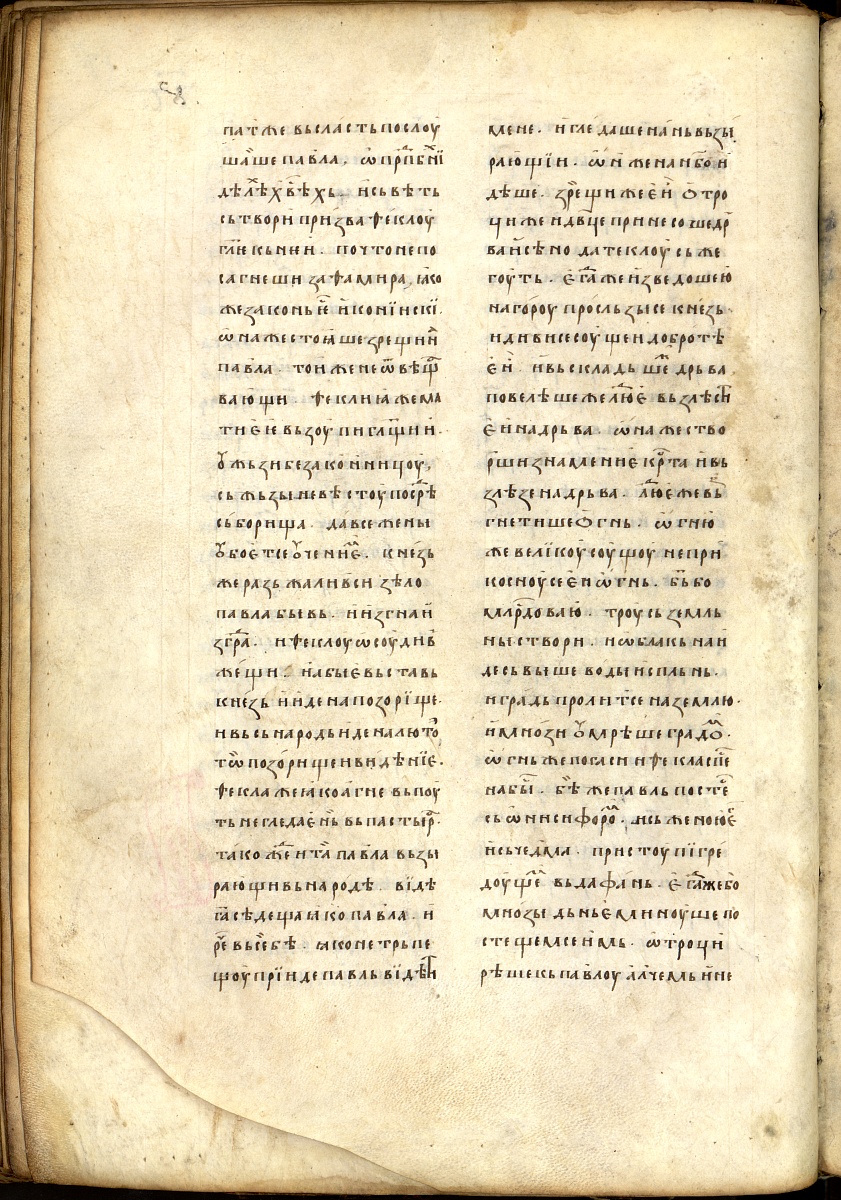 пат же вьсласть послоу
шаше павла, ѡ прпⷣбнїи
дѣлѣⷯ хⷭвѣхь. и сьвѣть
сьтвори призва ѳеклоу
гл҃ѥ кь нѥи. почто не по
сагнеши за ѳамира, ꙗко
же законь ѥⷭ иконїискі.
ѡна же стоꙗше зрещи на
павла. тои же не ѿвѣщꙗ
вающи. ѳеклиꙗ же ма
ти ѥѥ вьзоупи гл҃щи и.
ꙋжьзи безаконницоу,
сьжьзы невѣстоу посрⷣѣ
сьборища. да все жены
ꙋбоѥтсе ꙋчениѥ. кнезь
же разьжаливси зѣло
павла бывь. и изгна и
зграⷣ. и ѳеклоу ѡсоуди в
жещи. и абыѥ вьставь
кнезь и иде на позорїще.
и вьсь народь иде на люто
тѡ позорище и видѣнїе.
ѳекла же ꙗко агне вь поу
ть не гледаѥⷮ нь вь пастырꙗ.
тако жⷣе и та павла вьзы
рающи вь народѣ. видѣ
га҃ седеща ꙗко павла. и
рⷱе вь себѣ. ꙗко не трьпе
щоу прїиде павль видѣти
мене. и гледаше на нь вьзы
рающїи. ѡн же на нб҃о и
дѣше. зреⷳщи же ѥи ѡтро
ци же и двⷪ҃це принесоше дрь
ва и сѣно да теклоу сьже
гоуть. ѥгⷣа же изведошею
на гороу просльзысе кнезь.
и дивисе соущеи добротѣ
ѥи. и вьскладьшеⷤ дрьва
повелѣше же люⷣѥ вьзлѣсти
ѥи на дрьва. ѡна же ство
рши знамениѥ крⷭта и вь
злѣзе на дрьва. люⷣѥ же вь
гнетише ѡгнь. ѡгню
же велїкоу соущоу не при
косноусе ѥи ѡгнь. б҃ь бо
млрⷭдоваю. троусь земль
ны створи. и ѡблакь наи
де сь выше воды исплнь.
и градь пролитсе на землю.
и мнозы ꙋмрѣше градоⷨ.
ѡгнь же погаси и ѳекла спⷭе
на быⷭ. бѣ же павль посте
сь ѡнисифороⷨ. и сь женою ѥⷢ
и сь чедмꙗ. при стоупї гре
доущеⷨ вь дафань. ѥгⷣа же бо
мнозы дьньѥ миноуше по
стещемсе имь. ѡтроци
рѣше кь павлоу алчемь и не